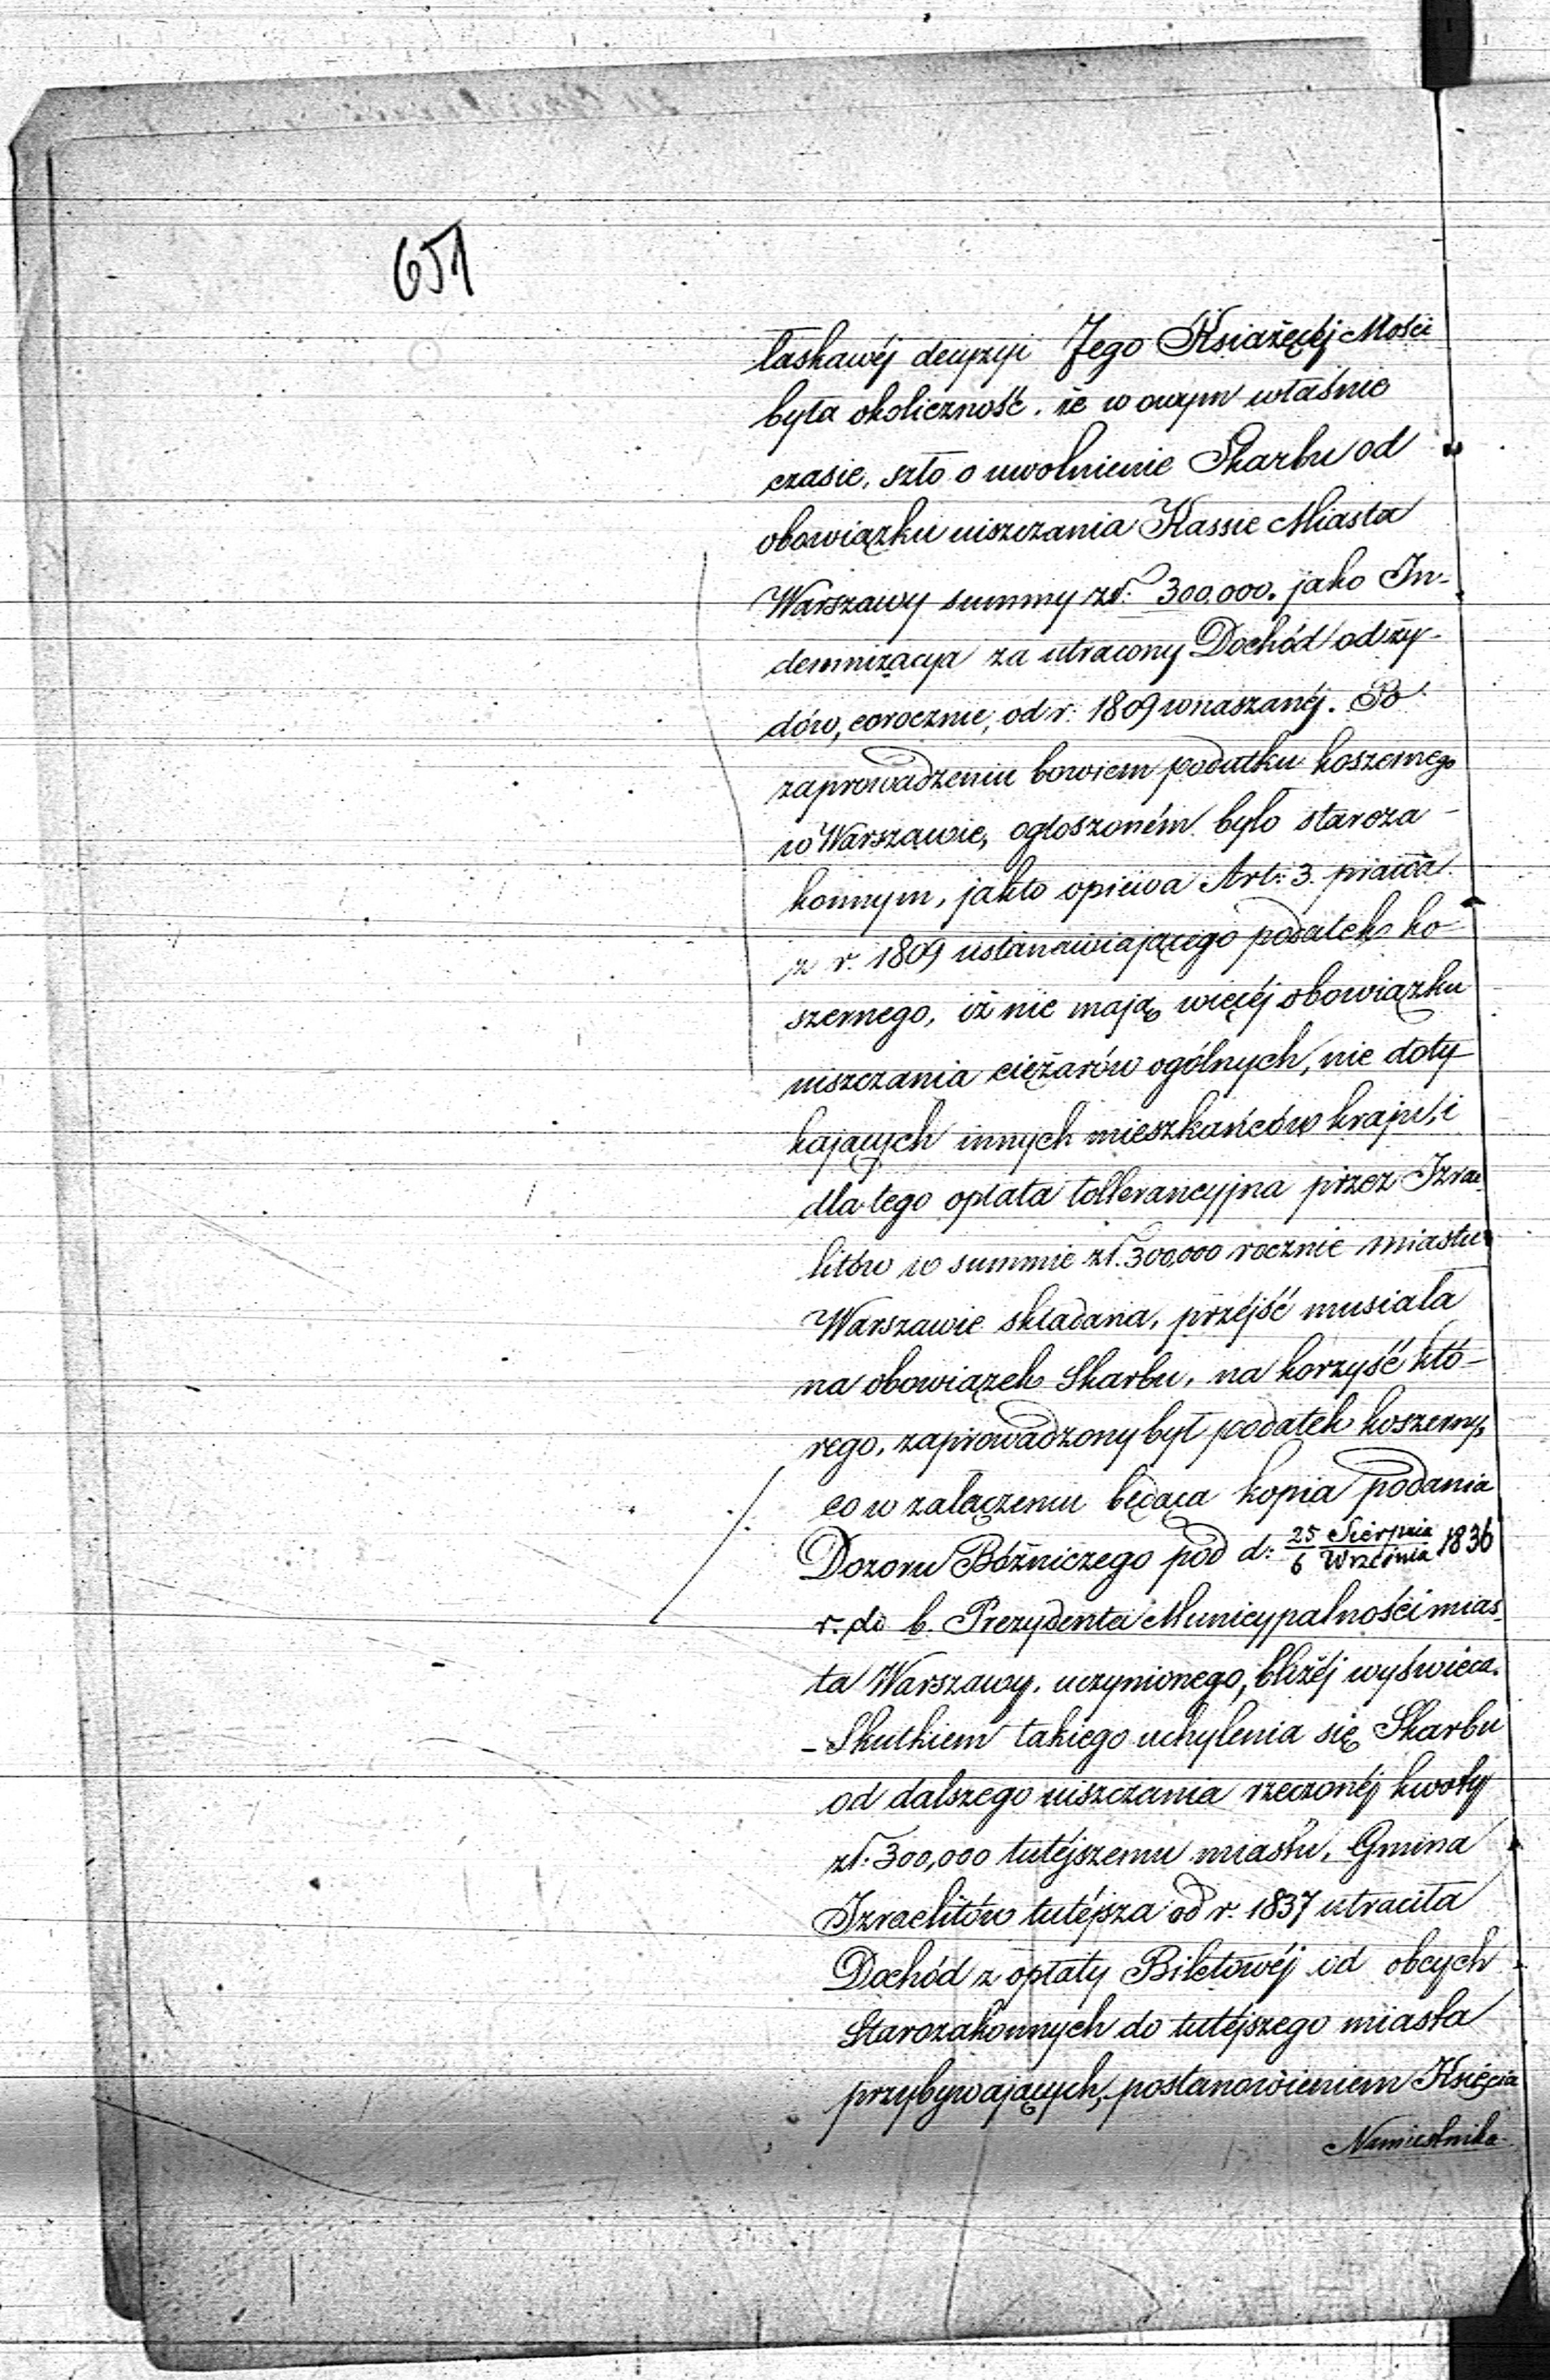 651
łaskawéj decyzyi Jego Książęcéj Mości
była okoliczność, że w owym właśnie
czasie, szło o uwolnienie Skarbu od
obowiązku uiszczania Kassie Miasta
Warszawy summy zł: 300,000. jako In-
demnizacya za utracony Dochód od ży-
dów, corocznie, od r. 1809 wnaszanéj. Po
zaprowadzeniu bowiem podatku koszernego
w Warszawie, ogłoszoném było staroza-
konnym, jak to opiewa Art: 3. prawa
z r. 1809 ustanawiającego podatek ko-
szernego, iż nie mają więcéj obowiązku
uiszczania ciężarów ogólnych, nie doty-
kających innych mieszkańców kraju, i
dla tego opłata tollerancyjna przez Izrae-
litów w summie zł. 300,000 rocznie miastu
Warszawie składana, przejść musiała
na obowiązek Skarbu, na korzyść któ-
rego, zaprowadzony był podatek koszerny,
co w załączeniu będąca kopia podania
Dozoru Bóźniczego pod d: 25 Sierpnia / 6 Września 1836
r. do b. Prezydenta Municypalności mias-
ta Warszawy, uczynionego, bliżéj wyświeca.
- Skutkiem takiego uchylenia się Skarbu
od dalszego uiszczania rzeczonéj kwoty
zł: 300,000 tutéjszemu miastu, Gmina
Izraelitów tutéjsza od r. 1837 utraciła
Dochód z opłaty Biletowéj od obcych
Starozakonnych do tutéjszego miasta
przybywających, postanowieniem Księcia
Namiestnika